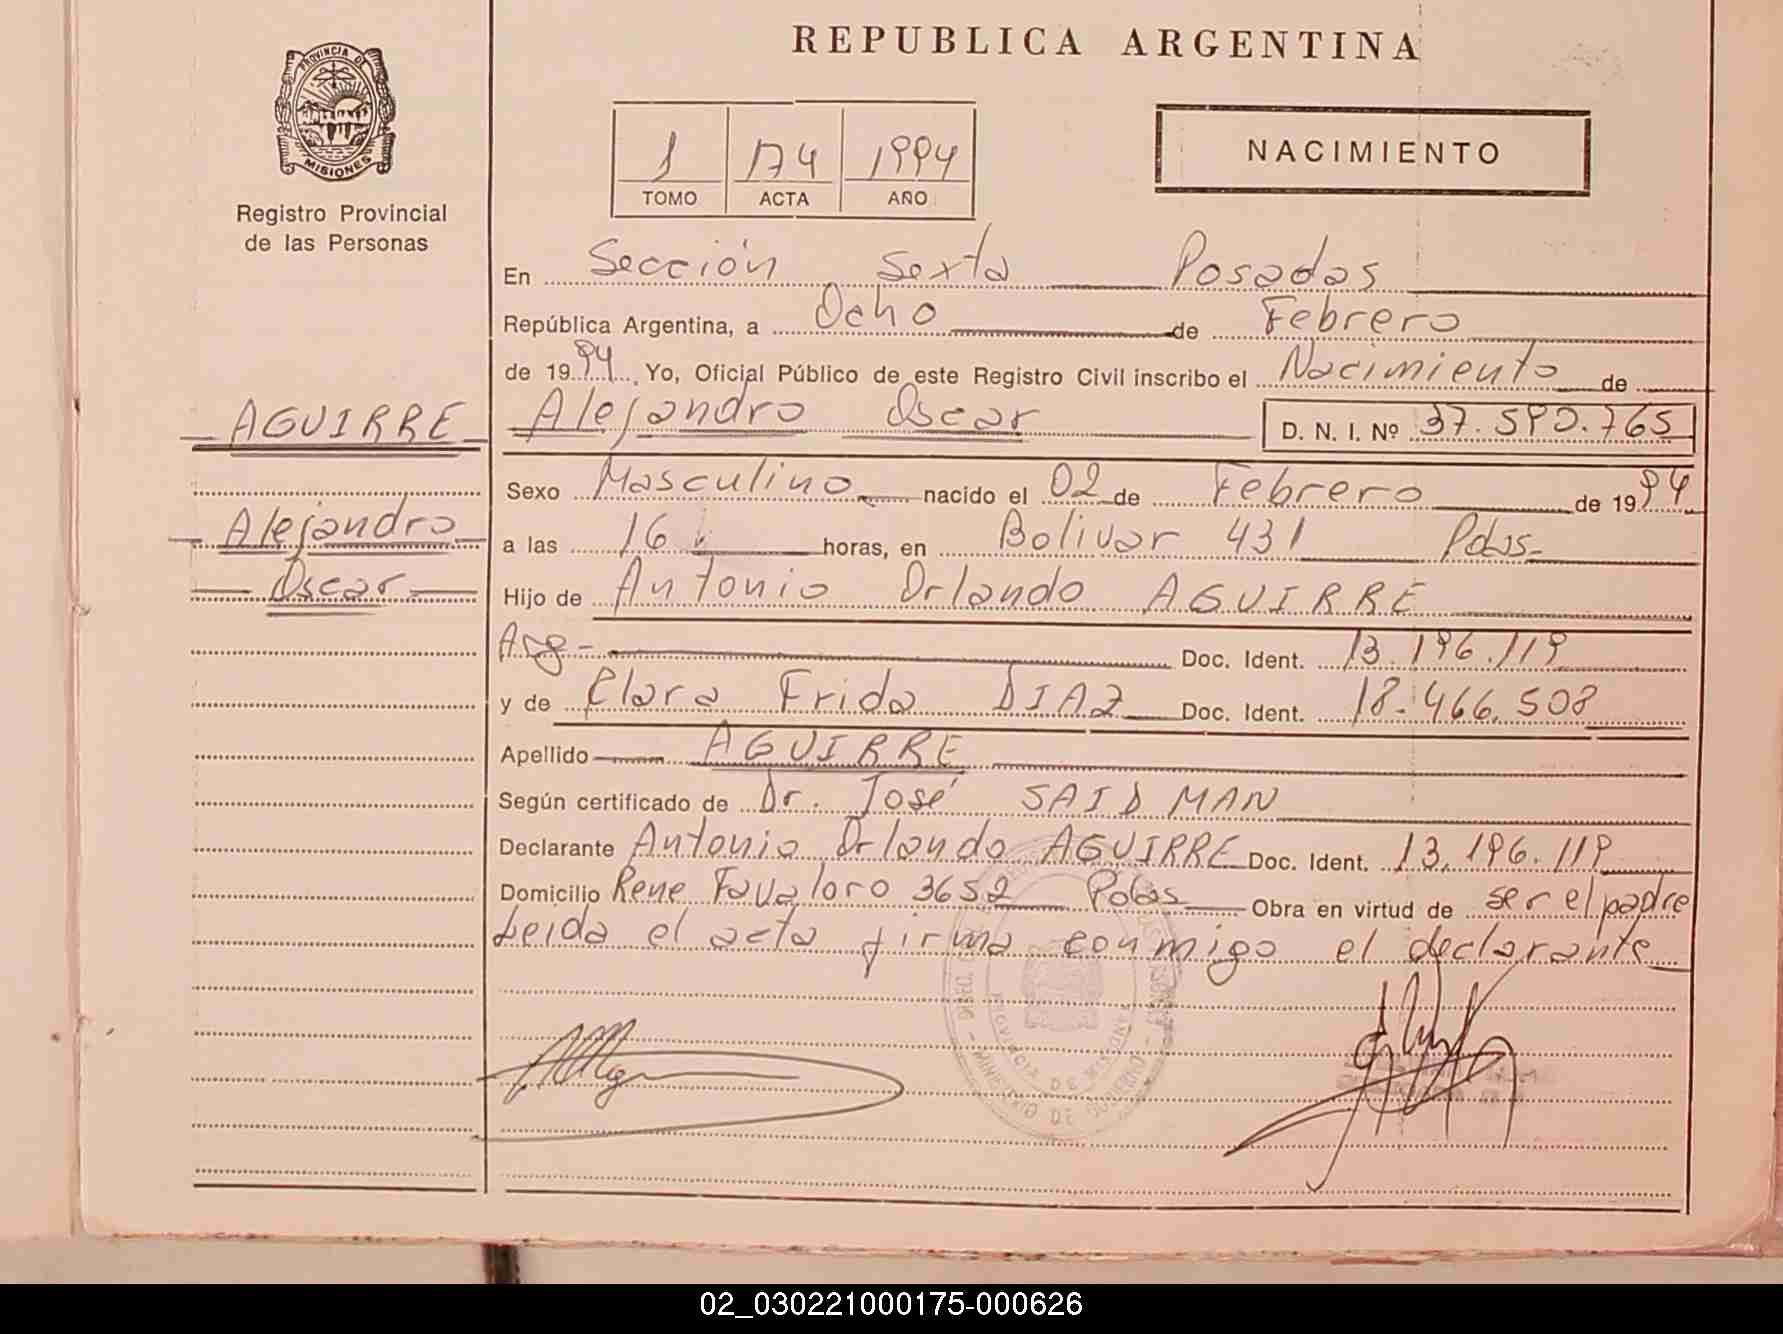 REPUBLICA ARGENTINA
PROVINCIA DE
MISIONES
Registro Provincial
de las Personas
1 174 1994
TOMO ACTA AÑO
NACIMIENTO
En Sección Sexta Posadas
República Argentina, a Ocho de Febrero
de 1994. Yo, Oficial Público de este Registro Civil inscribo el Nacimiento de
AGUIRRE
Alejandro Oscar D. N. I. Nº 37.590.765
Sexo Masculino nacido el 02 de Febrero de 1994
Alejandro
a las 16 horas, en Bolivar 431 Pdas.
Oscar
Hijo de Antonio Orlando AGUIRRE
Arg- Doc. Ident. 13.196.119
y de Clara Frida DIAZ Doc. Ident. 18.466.508
Apellido AGUIRRE
Según certificado de Dr. José SAIDMAN
Declarante Antonio Orlando AGUIRRE Doc. Ident. 13.196.119
Domicilio Rene Favaloro 3652 Pdas Obra en virtud de ser el padre
Leida el acta firma conmigo el declarante
PROVINCIA DE MISIONES
MINISTERIO DE GOBIERNO
02_030221000175-000626